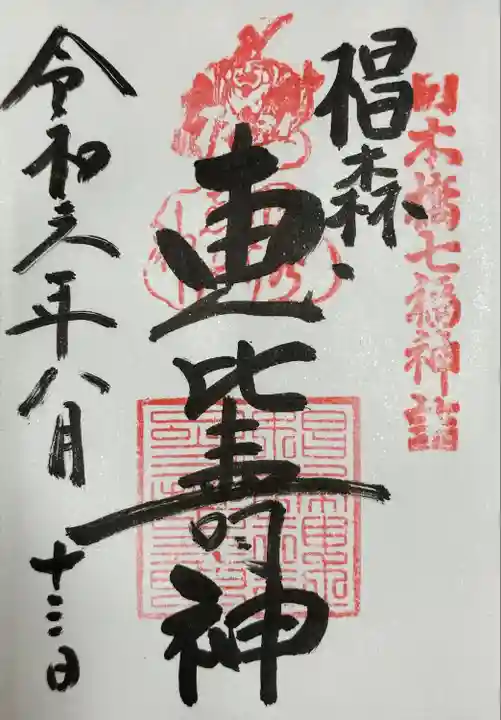 日本橋七福神詣
椙森
恵比寿神
令和六年八月十三日